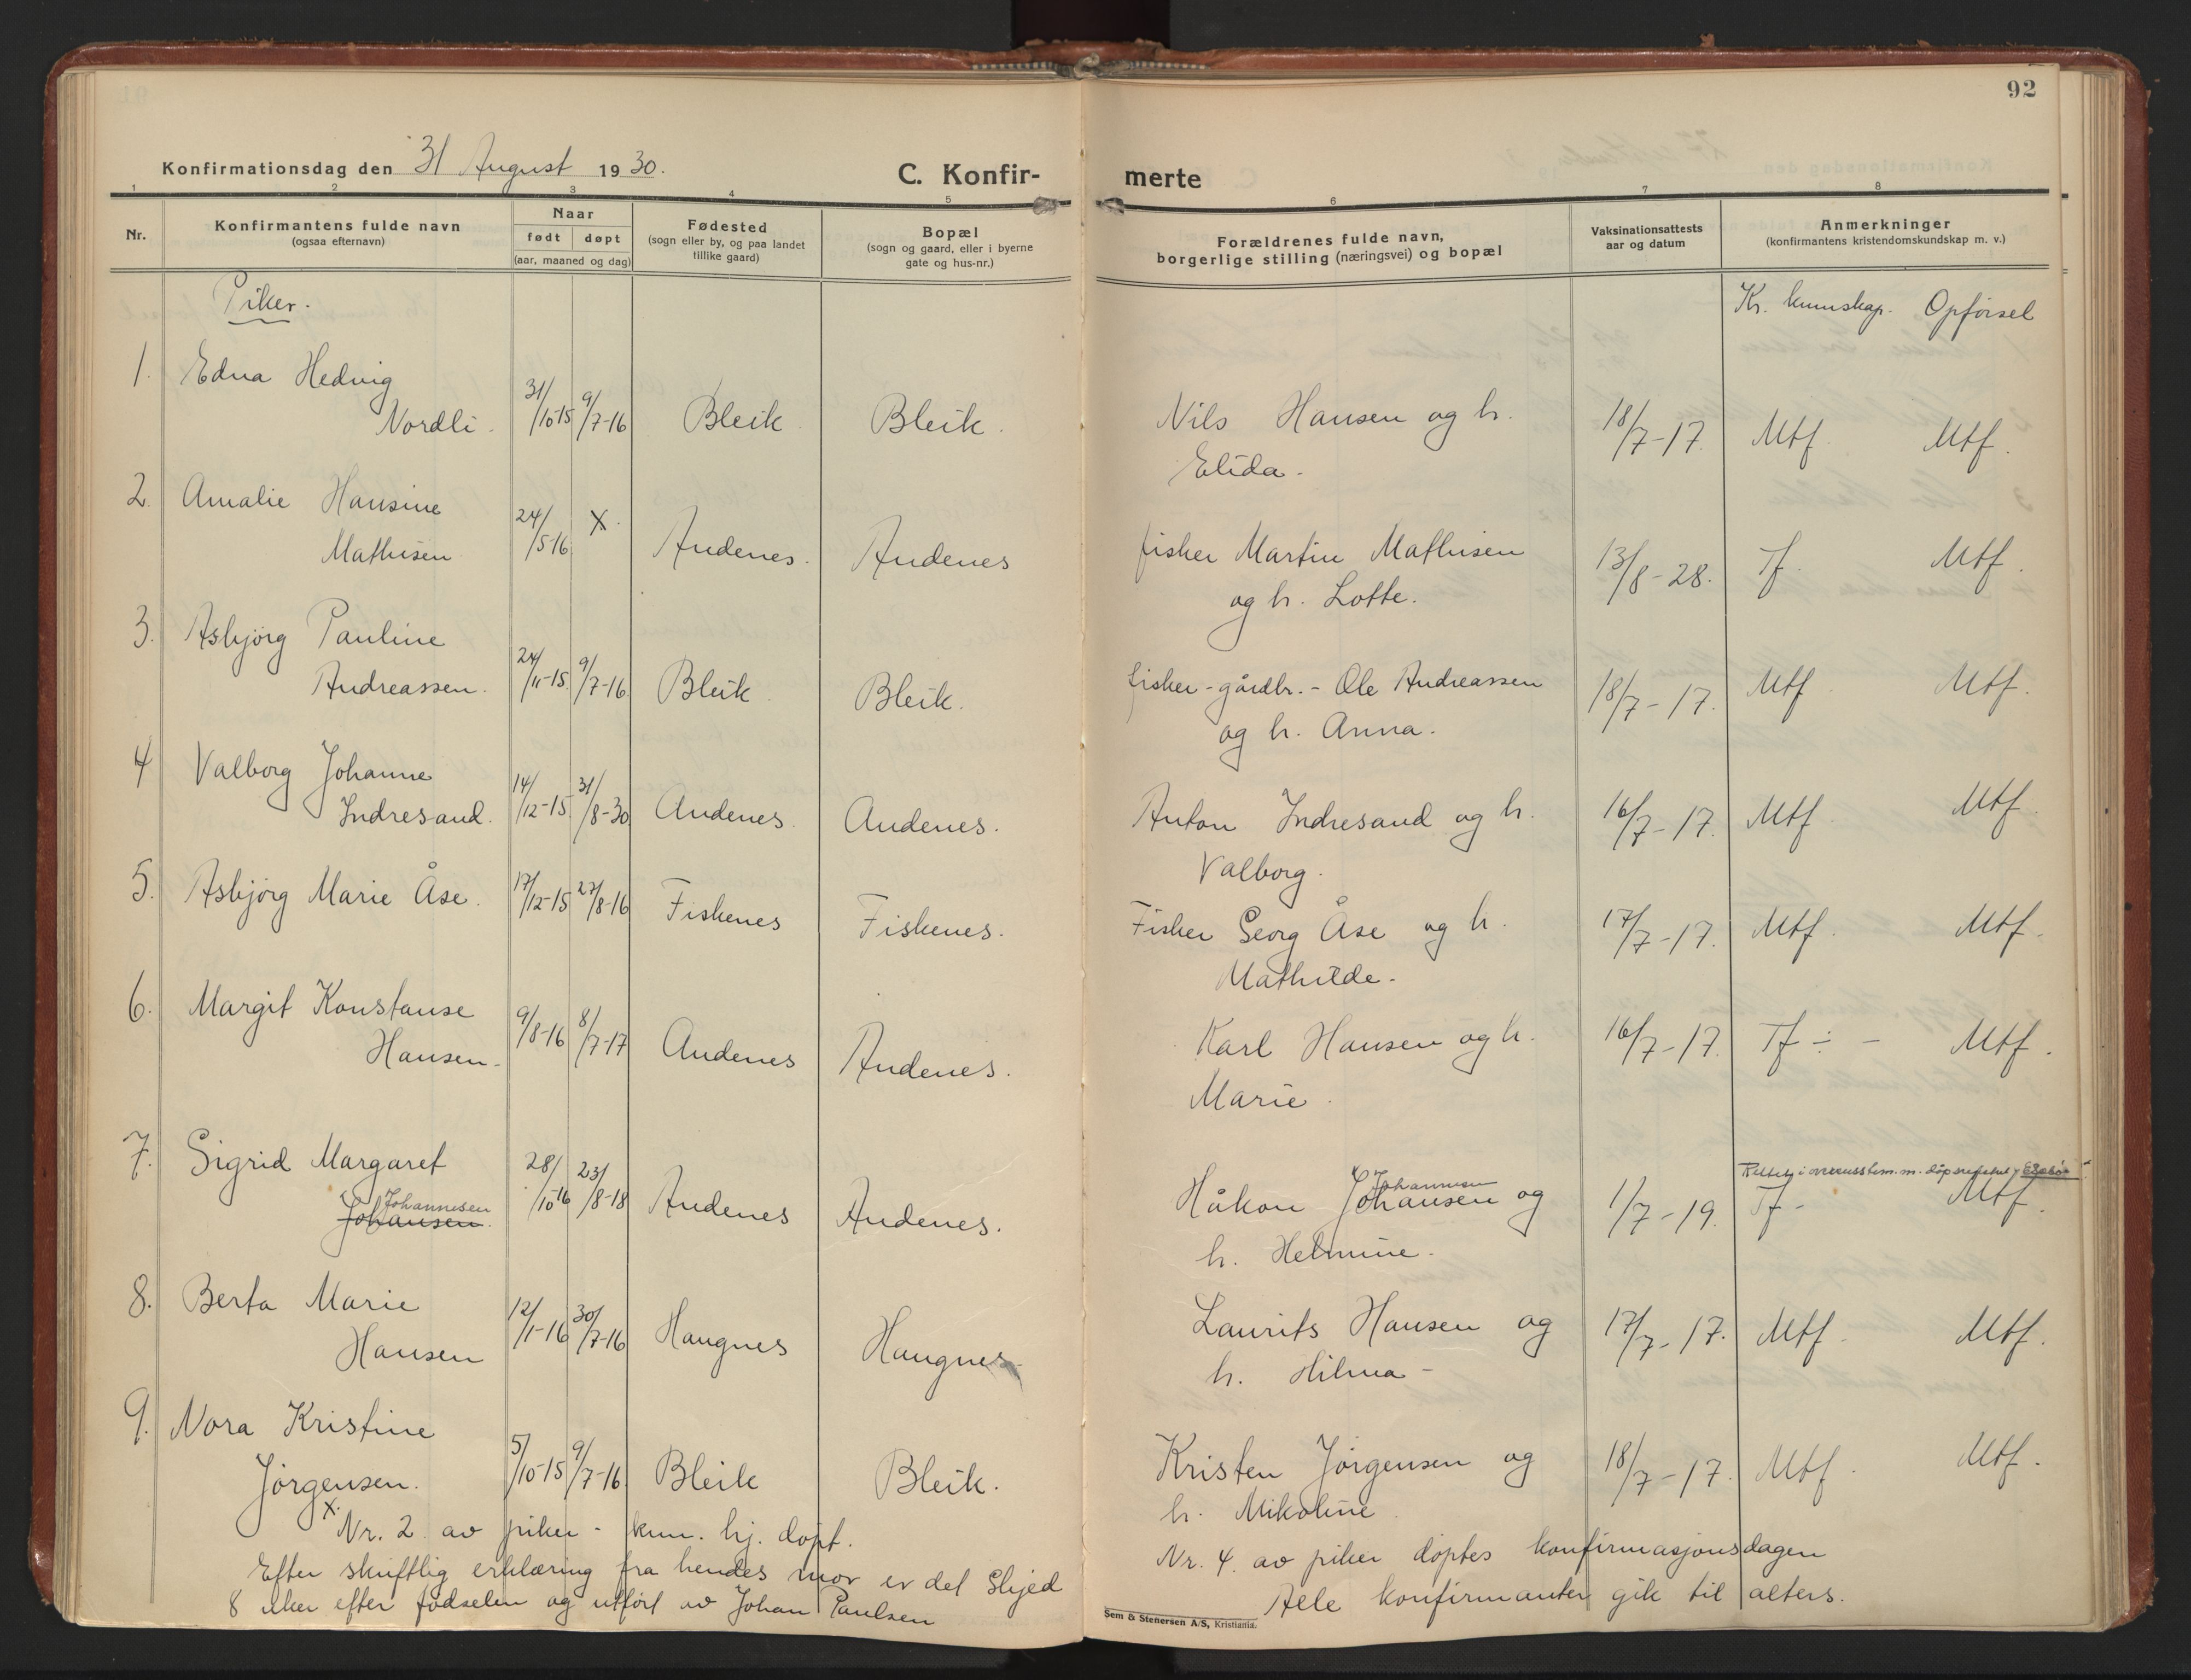 92
Konfirmationsdag den 31 August 1930.
C. Konfir-
merte
1 2 3 4 5 6 7 8
Nr.
Konfirmantens fulde navn
(ogsaa efternavn)
Naar
født døpt
(aar, maaned og dag)
Fødested
(sogn eller by, og paa landet
tillike gaard)
Bopæl
(sogn og gaard, eller i byerne
gate og hus-nr.)
Forældrenes fulde navn,
borgerlige stilling (næringsvei) og bopæl
Vaksinationsattests
aar og datum
Anmerkninger
(konfirmantens kristendomskundskap m. v.)
Piker.
Kr. kunnskap. Opførsel
1. Edna Hedvig
Nordli. 31/10-15 9/7-16 Bleik Bleik. Nils Hansen og h. 18/7-17. Mtf. Mtf.
Elida.
2. Amalie Hansine
Mathisen 24/5-16 X. Andenes. Andenes fisker Martin Mathisen 13/8-28. Tf. Mtf.
og h. Lotte.
3. Asbjørg Pauline
Andreassen. 24/11-15. 9/7-16 Bleik Bleik. fisker-gårdbr.- Ole Andreassen 18/7-17. Mtf Mtf.
og h. Anna.
4 Valborg Johanne
Indresand. 14/12-15. 31/8-30 Andenes. Andenes. Anton Indresand og h. 16/7-17. Mtf Mtf.
Valborg.
5. Asbjørg Marie Åse. 17/12-15 27/8-16 Fiskenes Fiskenes. Fisker Georg Åse og h. 17/7-17. Mtf. Mtf.
Mathilde.
6. Margit Konstanse
Hansen. 9/8-16 8/7-17 Andenes Andenes. Karl Hansen og h. 16/7-17. Tf ÷ - Mtf.
Marie.
7. Sigrid Margaret
Johannesen
Johansen. 28/10-16 23/8-18 Andenes Andenes. Håkon Johansen og 1/7-19. Tf - Mtf.
Johannesen
h. Helmine.
i m.
8. Berta Marie
Hansen 12/1-16 30/7-16 Haugnes Haugnes. Laurits Hansen og 17/7-17. Mtf. Mtf.
h. Hilma -
9. Nora Kristine
Jørgensen. 5/10-15 9/7-16 Bleik Bleik. Kristen Jørgensen og 18/7-17. Mtf. Mtf.
h. Mikoline
X. Nr. 2 av piker - kun. hj. døpt.
Efter skriftlig erklæring fra hendes mor er det skjed
8 uker efter fødselen og utført av Johan Paulsen
Nr. 4. av piker døptes konfirmasjonsdagen
Alle konfirmanter gik til alters.
Sem & Stenersen A/S, Kristiania.